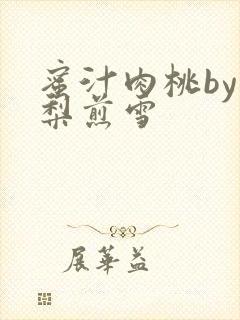 蜜汁肉桃by
梨煎雪
展华益